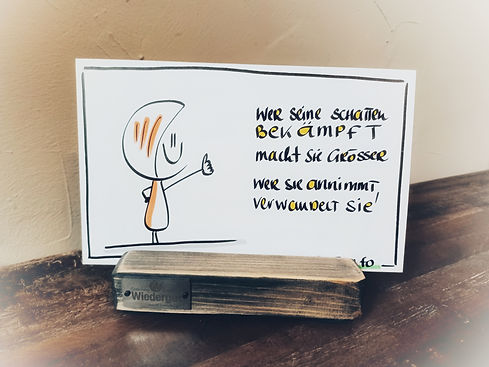 WER SEINE SCHATTEN
BEKÄMPFT
macht SIE GRÖSSER
WER SIE annimmt
VERWANDELT SIE!